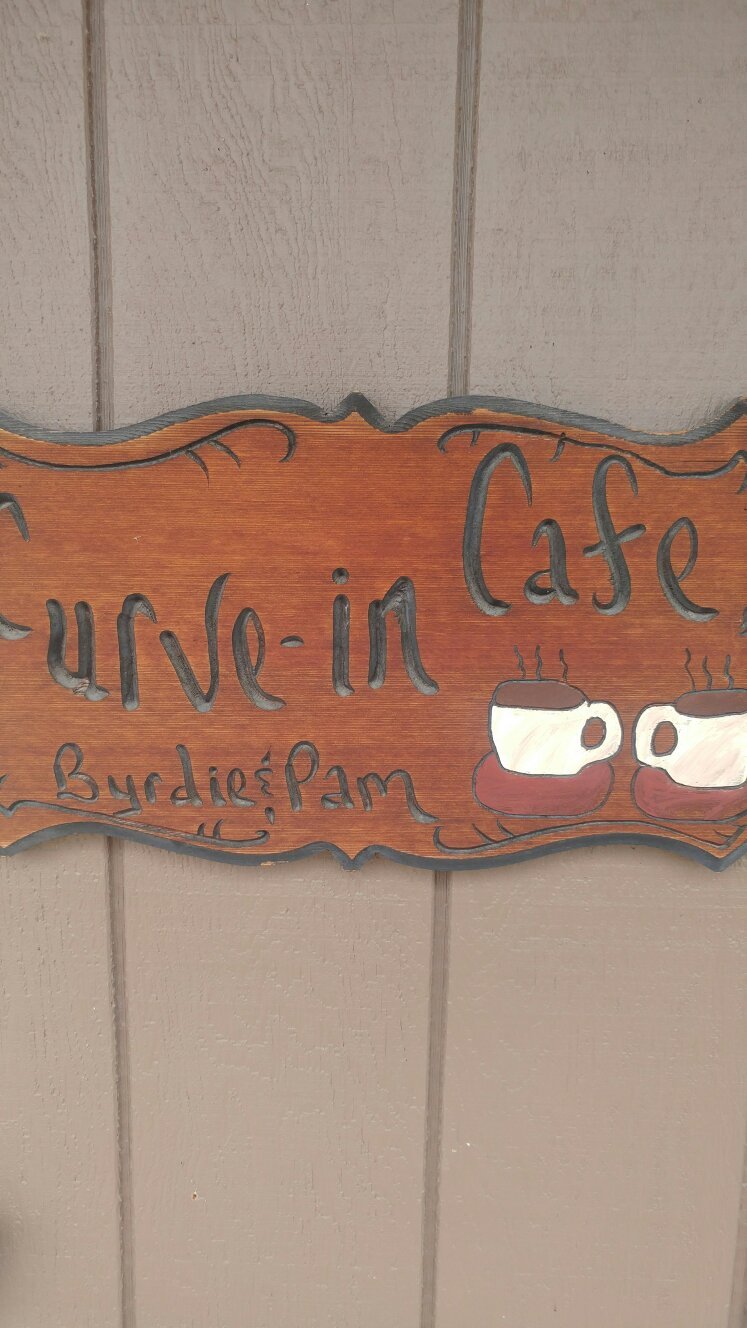 Curve-in Cafe
Byrdie & Pam